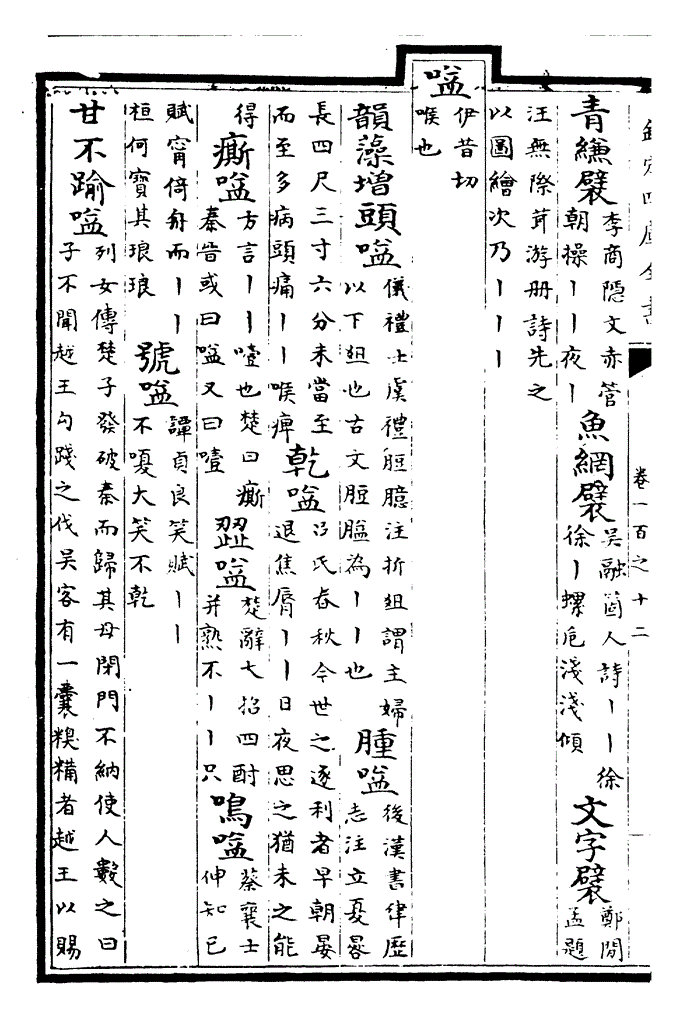 欽定四庫全書
卷一百之十二
青縑襞
李商隠文赤管
朝操丨丨夜丨
魚網襞
吴融箇人詩丨丨徐
徐丨螺巵淺淺傾
文字襞
鄭閒
孟題
汪無際茸游册詩先之
以圖繪次乃丨丨丨
嗌
伊昔切
喉也
韻藻増頭嗌
儀禮士虞禮脰臆注折俎謂主婦
以下俎也古文脰膉為丨丨也
腫嗌
後漢書律歷
志注立夏晷
長四尺三寸六分未當至
而至多病頭痛丨丨喉痺
乾嗌
吕氏春秋今世之逐利者早朝晏
退焦脣丨丨日夜思之猶未之能
得
㾷嗌
方言丨丨噎也楚曰㾷
秦晉或曰嗌又曰噎
歰嗌
楚辭大招四酎
并熟不丨丨只
鳴嗌
蔡襄士
伸知己
賦甯倚舟而丨丨
桓何寳其琅琅
號嗌
譚貞良笑賦丨丨
不嗄大笑不乾
甘不踰嗌
列女傳楚子發破秦而歸其母閉門不納使人數之曰
子不聞越王勾踐之伐吳客有一囊糗糒者越王以賜